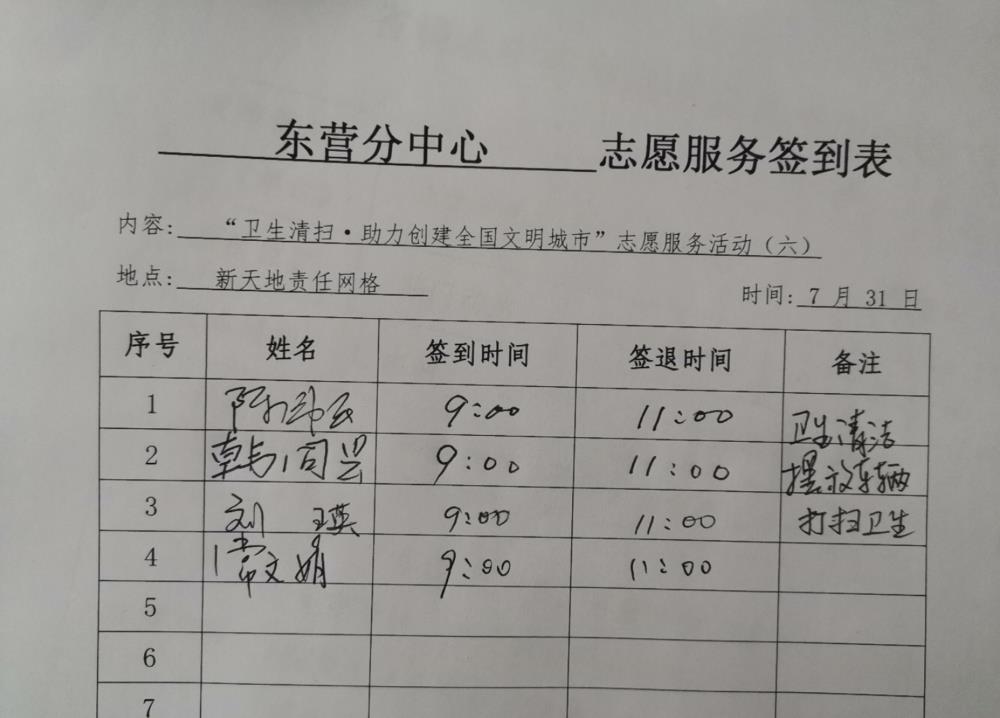 东营分中心 志愿服务签到表
内容: “卫生清扫·助力创建全国文明城市”志愿服务活动（六）
地点: 新天地责任网格
时间: 7 月 31 日
序号 姓名 签到时间 签退时间 备注
1 9:00 11:00 卫生清洁
2 韩同岩 9:00 11:00 摆放车辆
3 刘瑛 9:00 11:00 打扫卫生
4 常文娟 9:00 11:00
5
6
7